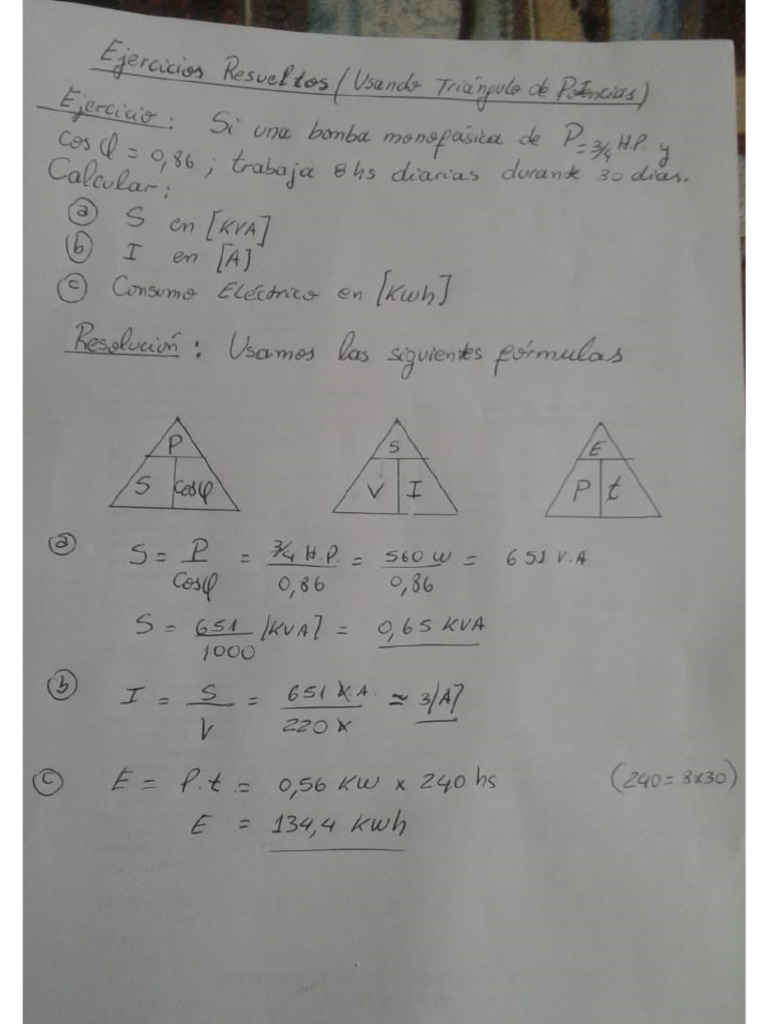 Ejercicios Resueltos (Usando Triángulo de Potencias)
Ejercicio: Si una bomba monofásica de P=3/4 H.P. y
cos φ = 0,86 ; trabaja 8 hs diarias durante 30 días.
Calcular:
ⓐ S en [KVA]
ⓑ I en [A]
ⓒ Consumo Eléctrico en [Kwh]
Resolución: Usamos las siguientes fórmulas
P S E
S cosφ V I P t
ⓐ S = P/Cosφ = 3/4 H.P./0,86 = 560 W/0,86 = 651 V.A
S = 651/1000 [KVA] = 0,65 KVA
ⓑ I = S/V = 651 V.A./220 V ≈ 3[A]
ⓒ E = P.t = 0,56 KW x 240 hs (240=8x30)
E = 134,4 Kwh